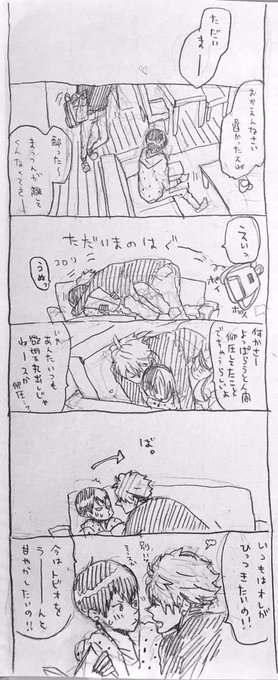 ただい
まー
おかえんなさい
遅かったスね
酔った〜
まっつんが離して
くんなくてさー
ただいまのはぐ
えいっ
ポイ
コロリ
うぬっ
何かさー
よっぱらうと人間
抑圧してたこと
でちゃうらしいよ
いや
あんたいつも
欲望丸出しじゃ
ねースか
抑圧…?
ば。
いつもはオレが
ひっつきたいの!!
別!!
今はトビオを
うーーんと
甘やかしたいの!!